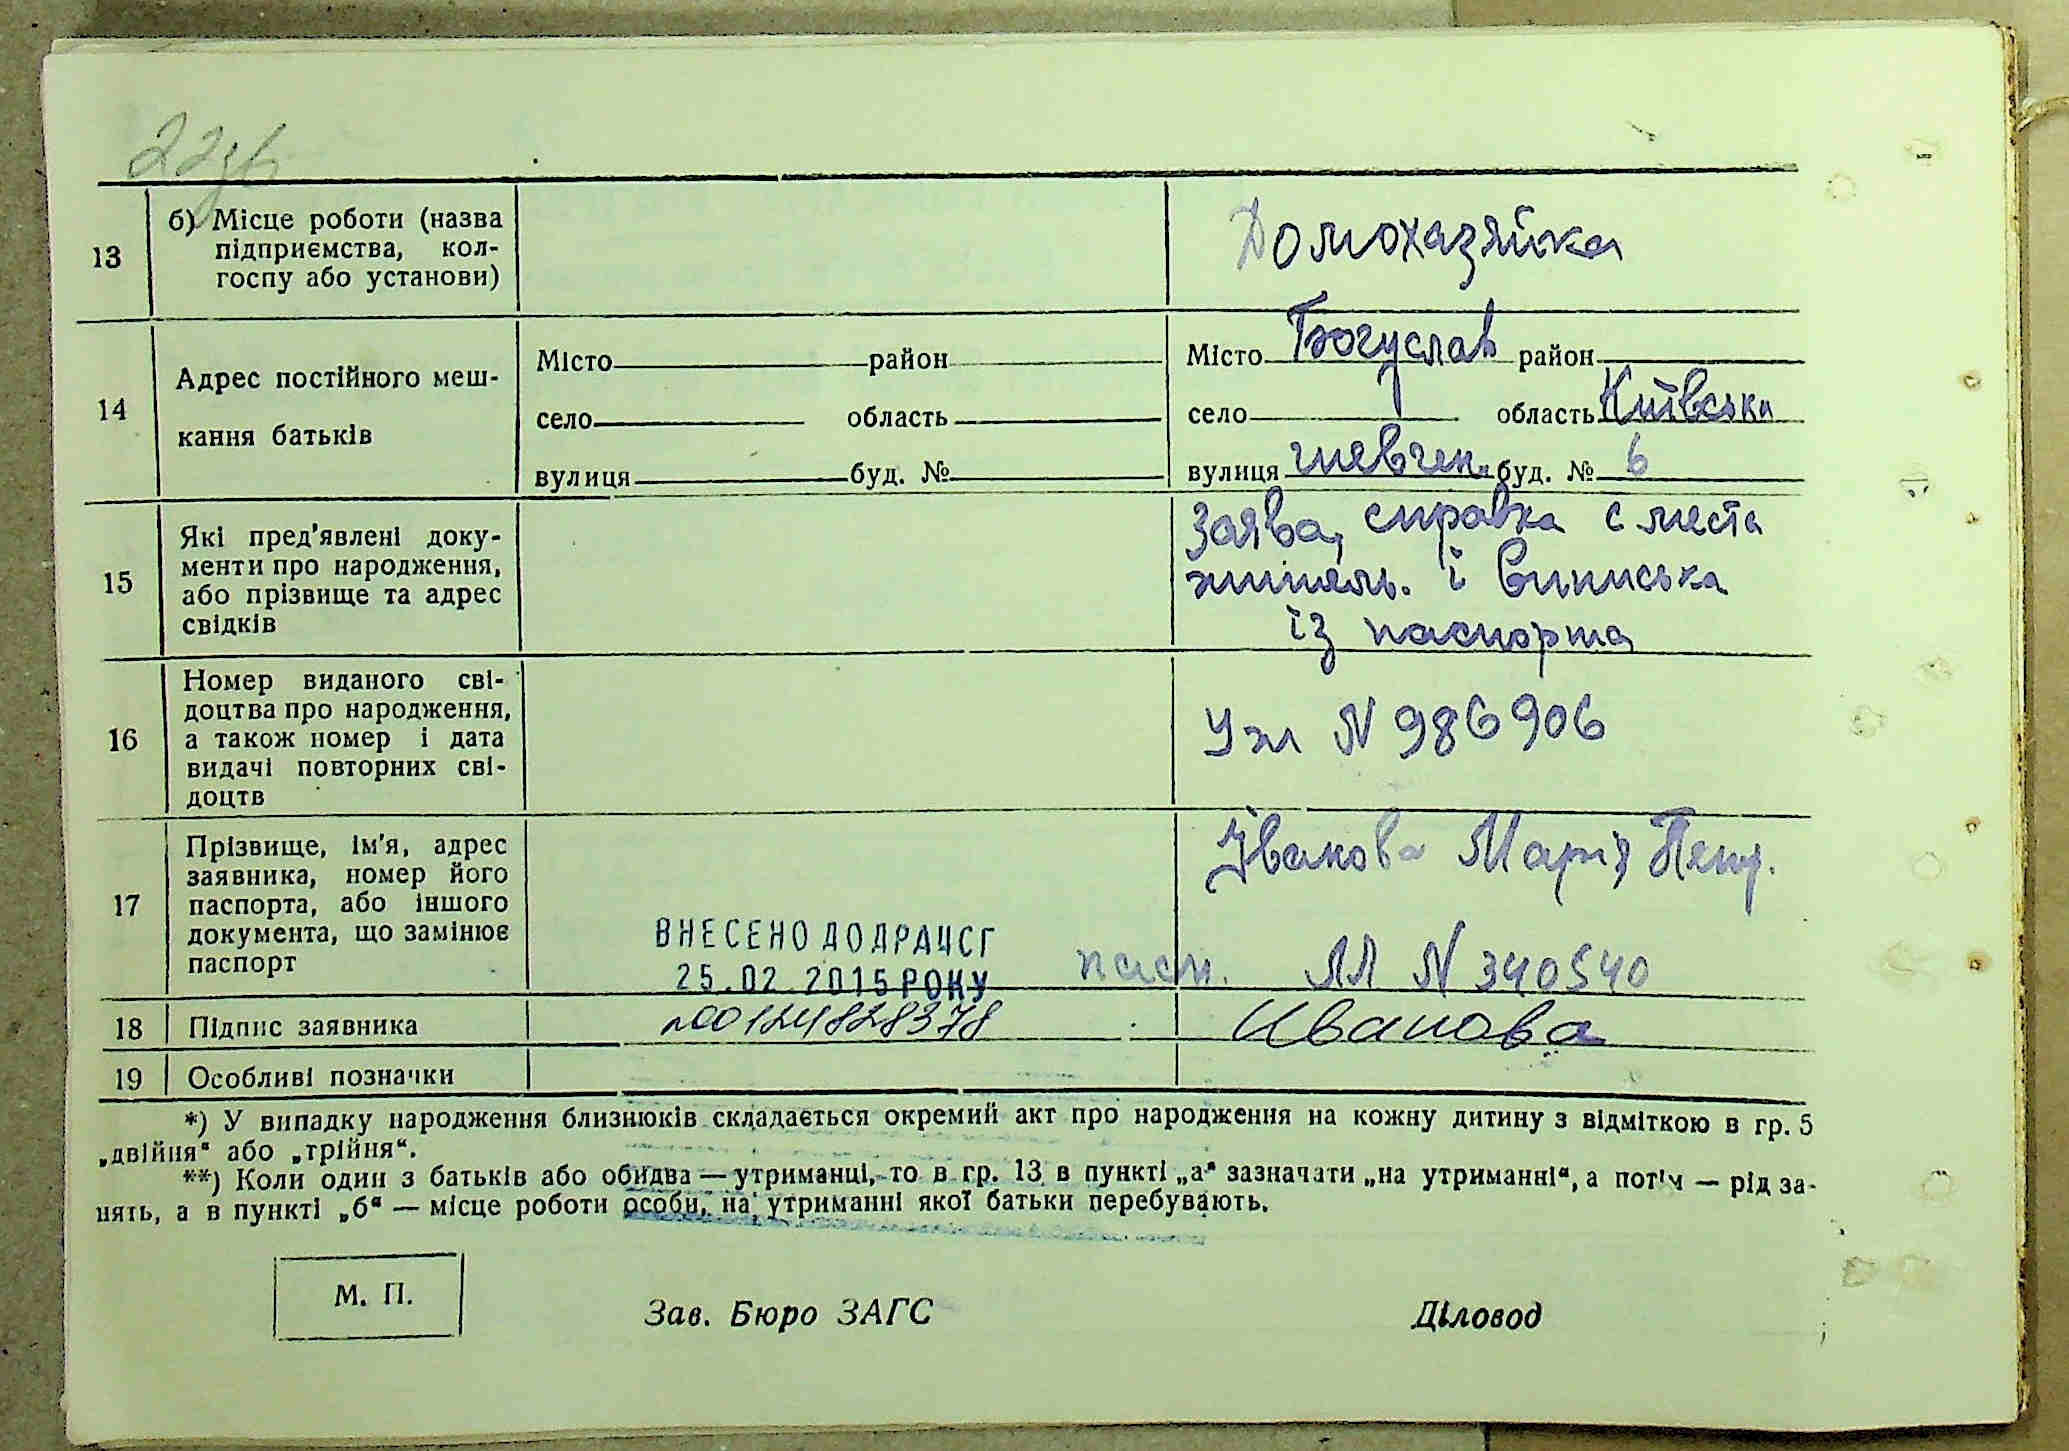 22зв
13
б) Місце роботи (назва
підприємства, кол-
госпу або установи)
Домохазяйка
14
Адрес постійного меш-
кання батьків
Місто район
село область
вулиця буд. №
Місто Богуслав район
село область Київська
вулиця Шевчен. буд. № 6
15
Які пред'явлені доку-
менти про народження,
або прізвище та адрес
свідків
Заява, справка с места
жітель. і Виписька
із паспорта
16
Номер виданого сві-
доцтва про народження,
а також номер і дата
видачі повторних сві-
доцтв
Уж N 986906
17
Прізвище, ім'я, адрес
заявника, номер його
паспорта, або іншого
документа, що замінює
паспорт
Іванова Марія Петр.
пасп. ЛЛ N 340540
ВНЕСЕНО ДО ДРАЦСГ
25.02.2015 РОКУ
18
Підпис заявника
№00124828378
Иванова
19
Особливі позначки
*) У випадку народження близнюків складається окремий акт про народження на кожну дитину з відміткою в гр. 5
„двійня“ або „трійня“.
**) Коли один з батьків або обидва — утриманці, то в гр. 13 в пункті „а“ зазначати „на утриманні“, а потім — рід за-
нять, а в пункті „б“ — місце роботи особи, на утриманні якої батьки перебувають.
М. П.
Зав. Бюро ЗАГС
Діловод